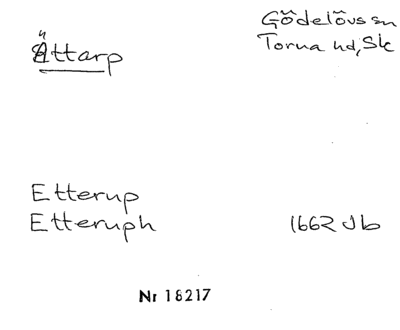 Gödelövs sn
Ättarp
Torna hd, Sk
Etterup
Etteruph 1662 Jb
Nr 18217